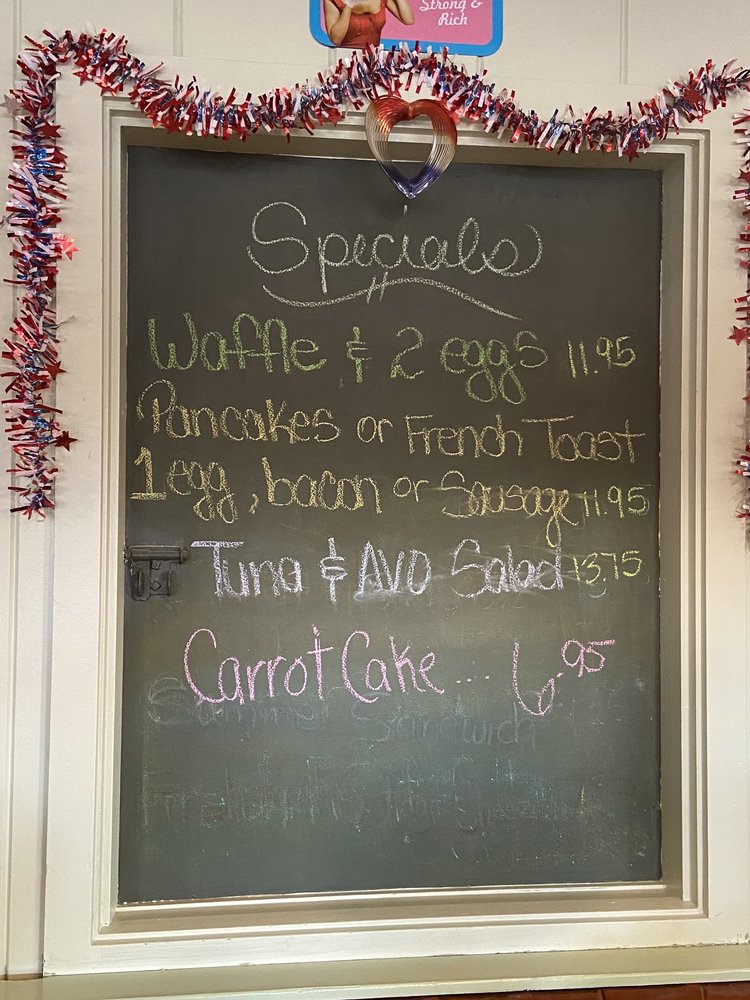 Strong &
Rich
Specials
Waffle & 2 eggs 11.95
Pancakes or French Toast
1 egg, bacon or Sausage 11.95
Tuna & AVO Salad 13.75
Carrot Cake .... 6.95
Sandwich